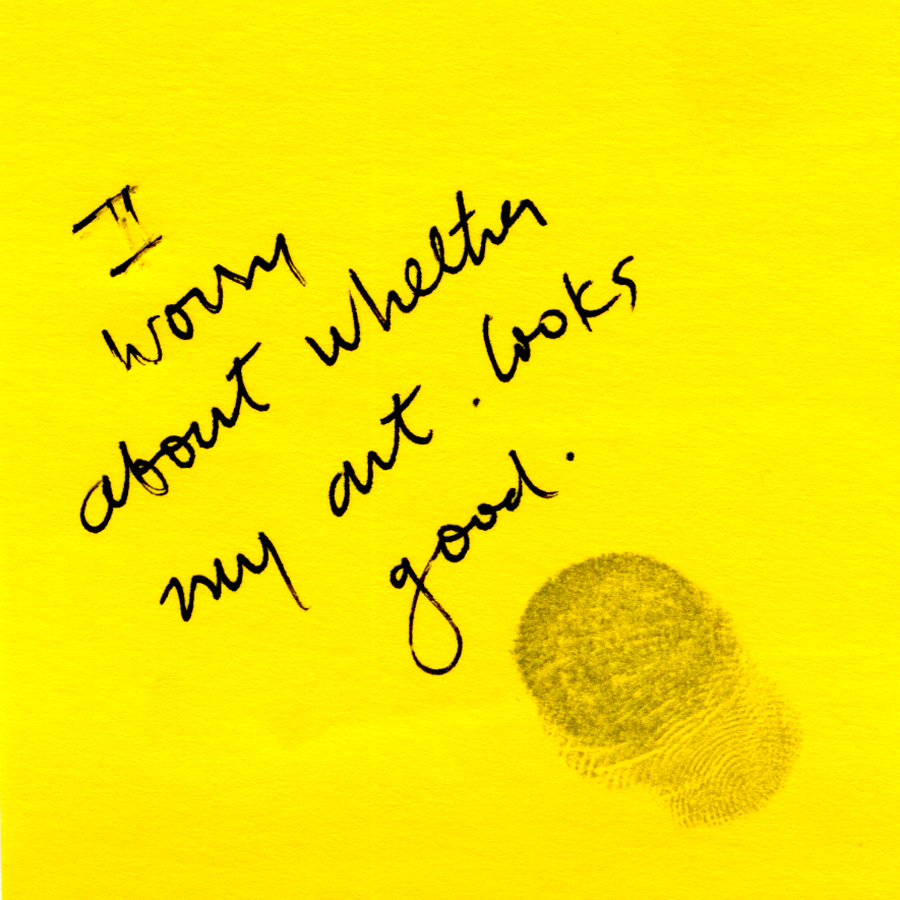 I
worry
about whether
my art. looks
good.